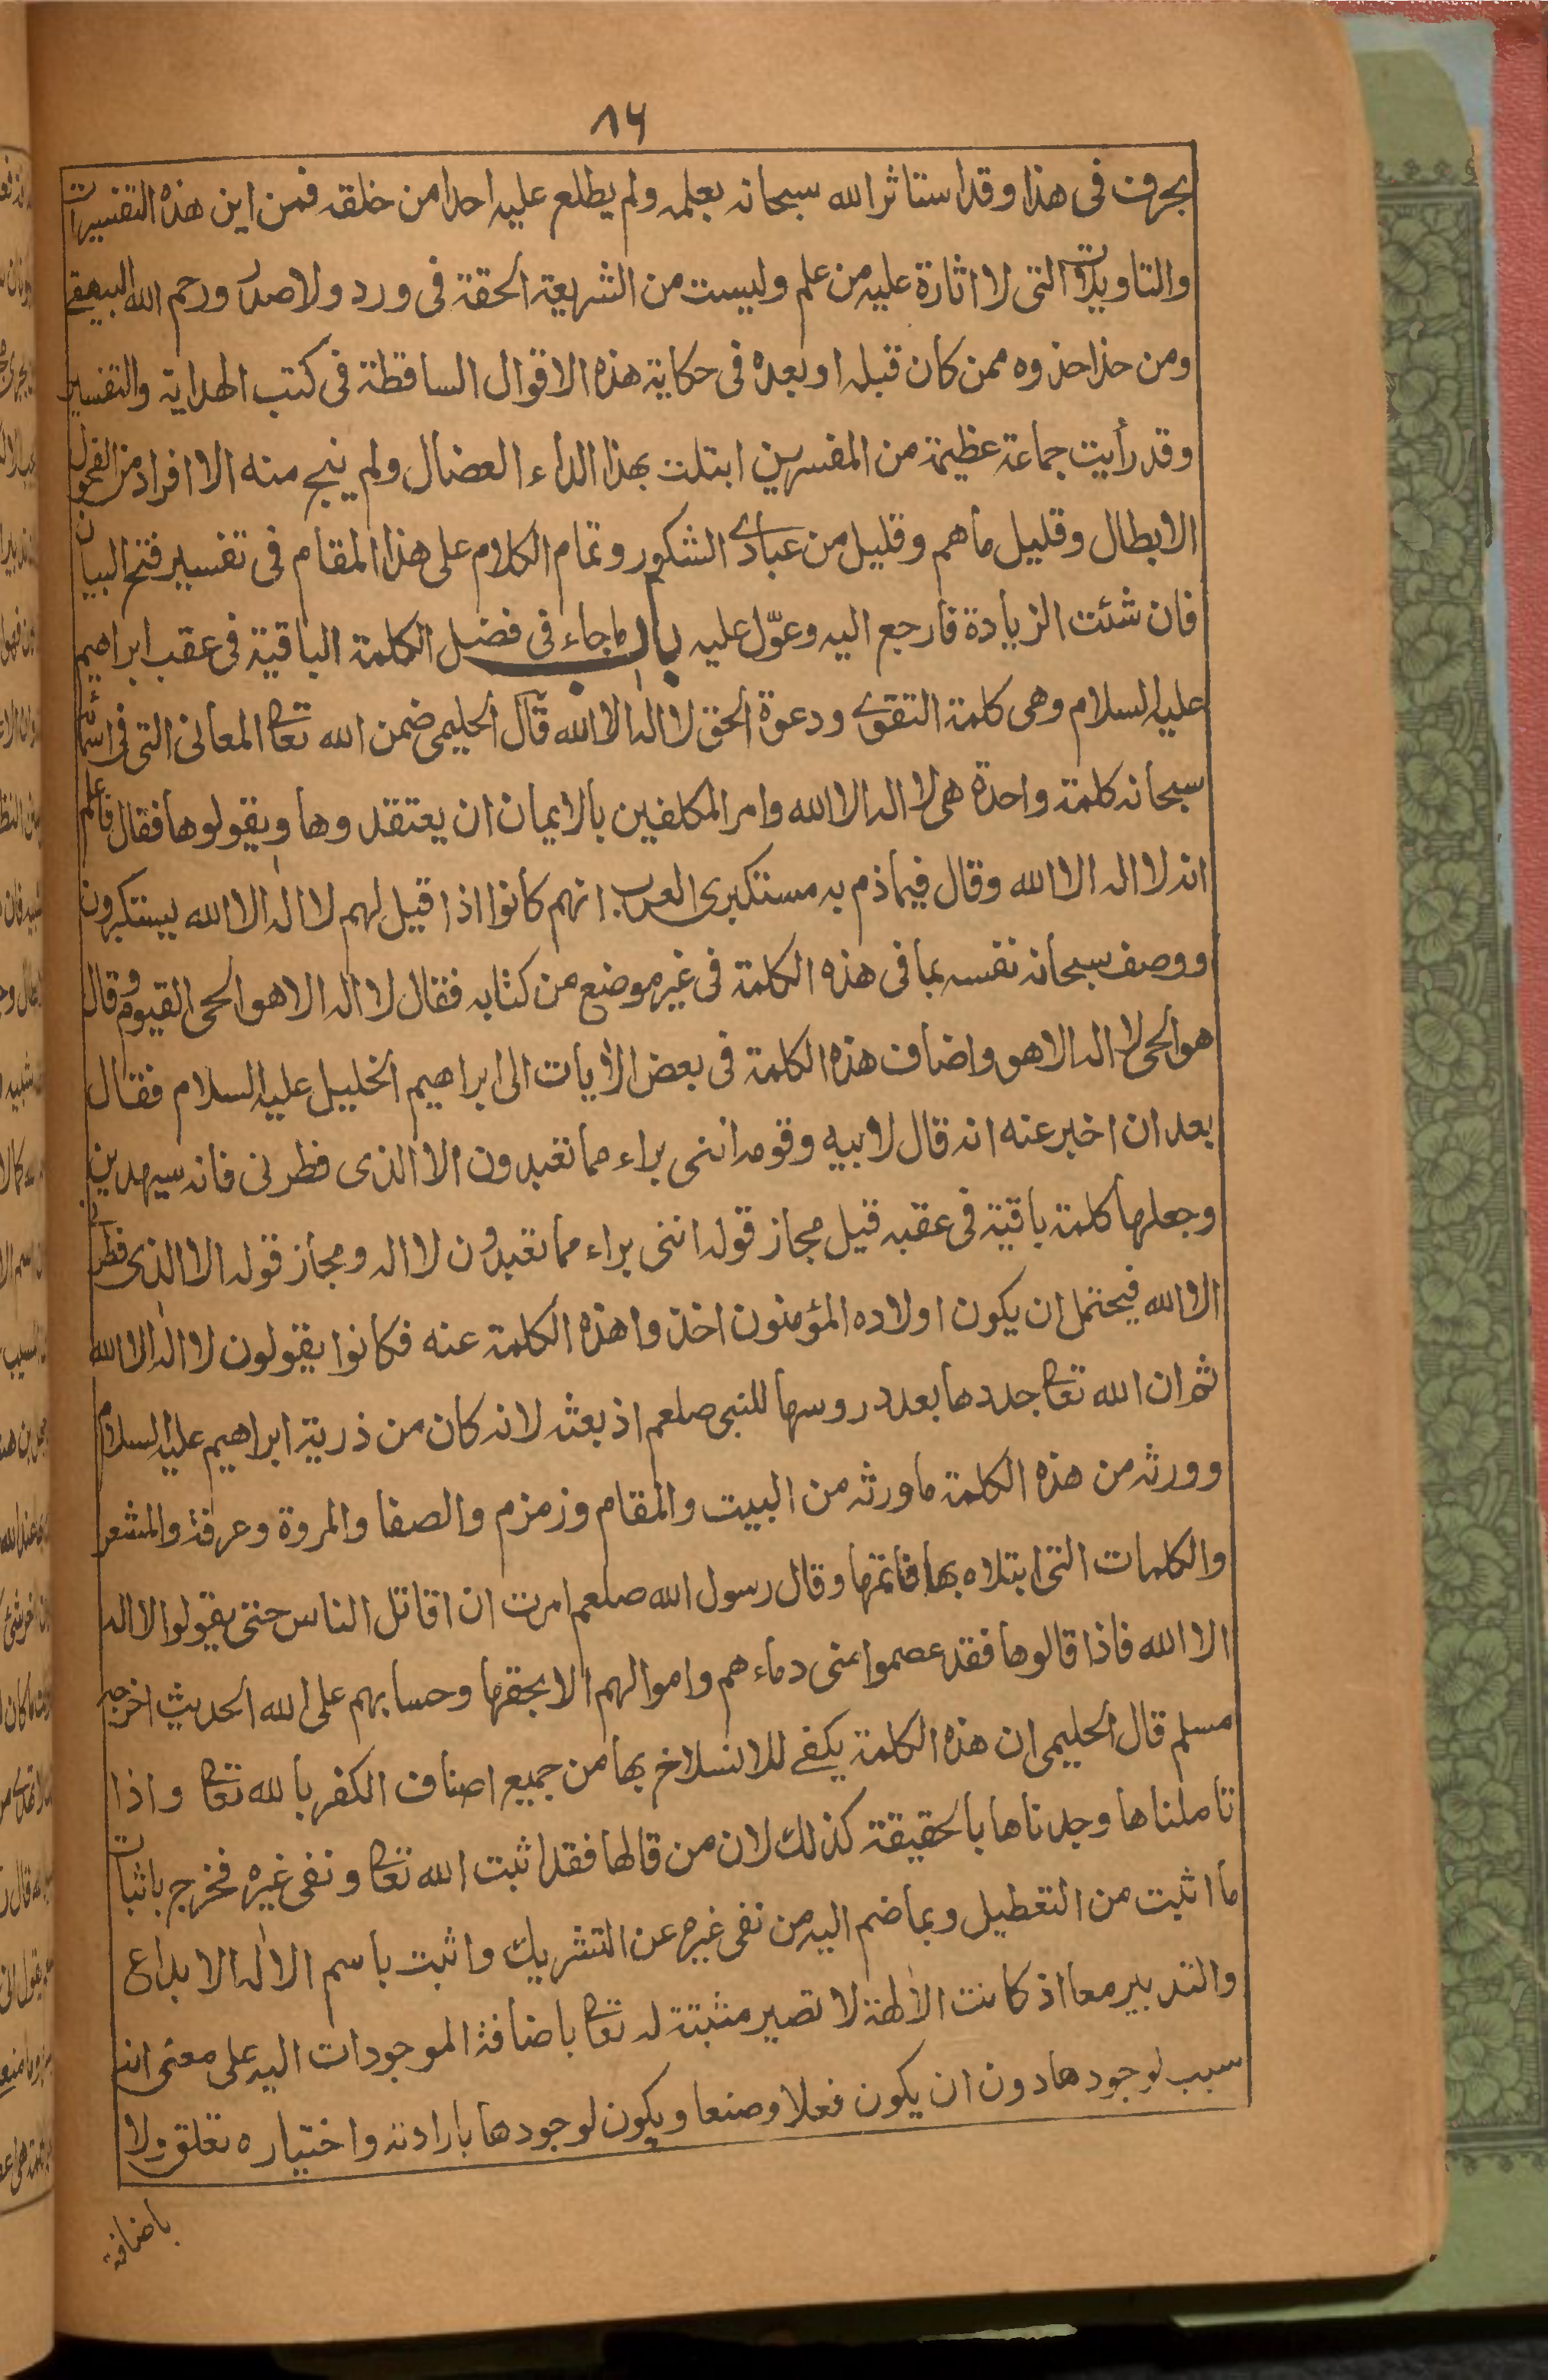 ٨٦
بحرف فى هذا وقد استاثر الله سبحانه بعلمه ولم يطلع عليه احدا من خلقه فمن اين هذه التفسيرات
والتاويلات التى لا اثارة عليه من علم وليست من الشريعة الحقة فى ورد ولا صدر ورحم الله البيهقے
ومن حذا حذوه ممن كان قبله او بعده فى حكاية هذه الاقوال الساقطة فى كتب الهداية والتفسير
وقد رأيت جماعة عظيمة من المفسرين ابتلت بهذا الداء العضال ولم ينج منه الا افراد من الفحول
الابطال وقليل ما هم وقليل من عبادے الشكور وتمام الكلام على هذا المقام فى تفسير فتح البيان
فان شئت الزيادة فارجع اليه وعوّل عليه باب ما جاء فى فضل الكلمة الباقية فى عقب ابراهيم
عليه السلام وهى كلمة التقوے ودعوة الحق لا اله الا الله قال الحليمى ضمن الله تعا المعانى التى فى اسمائه
سبحانه كلمة واحدة هى لا اله الا الله وامر المكلفين بالايمان ان يعتقدوها ويقولوها فقال فاعلم
انه لا اله الا الله وقال فيما ذم به مستكبرى العرب انهم كانوا اذا قيل لهم لا اله الا الله يستكبرون
ووصف سبحانه نفسه بما فى هذه الكلمة فى غير موضع من كتابه فقال لا اله الا هو الحى القيوم وقال
هو الحى لا اله الا هو واضاف هذه الكلمة فى بعض الأيات الى ابراهيم الخليل عليه السلام فقال
بعد ان اخبر عنه انه قال لابيه وقومه اننى براء مما تعبدون الا الذى فطرنى فانه سيهدين
وجعلها كلمة باقية فى عقبه قيل مجاز قوله اننى براء مما تعبدون لا اله ومجاز قوله الا الذى فطرنى
الا الله فيحتمل ان يكون اولاده المؤمنون اخذوا هذه الكلمة عنه فكانوا يقولون لا اله الا الله
ثم ان الله تعا جددها بعد دروسها للنبى صلعم اذ بعثه لانه كان من ذرية ابراهيم عليه السلام
وورثه من هذه الكلمة ما ورثه من البيت والمقام وزمزم والصفا والمروة وعرفة والمشعر
والكلمات التى ابتلاه بها فاتمها وقال رسول الله صلعم امرت ان اقاتل الناس حتى يقولوا لا اله
الا الله فاذا قالوها فقد عصموا منى دماءهم واموالهم الا بحقها وحسابهم على الله الحديث اخرجه
مسلم قال الحليمى ان هذه الكلمة يكفے للانسلاخ بها من جميع اصناف الكفر بالله تعا واذا
تاملناها وجدناها بالحقيقة كذلك لان من قالها فقد اثبت الله تعا ونفى غيره فخرج باثبات
ما اثبت من التعطيل وبما ضم اليه من نفى غيره عن التشريك واثبت باسم الاله الابداع
والتدبير معا اذ كانت الالهة لا تصير مثبتة له تعا باضافة الموجودات اليه على معنى انه
سبب لوجودها دون ان يكون فعلا وصنعا ويكون لوجودها بارادته واختياره تعلق ولا
باضافة